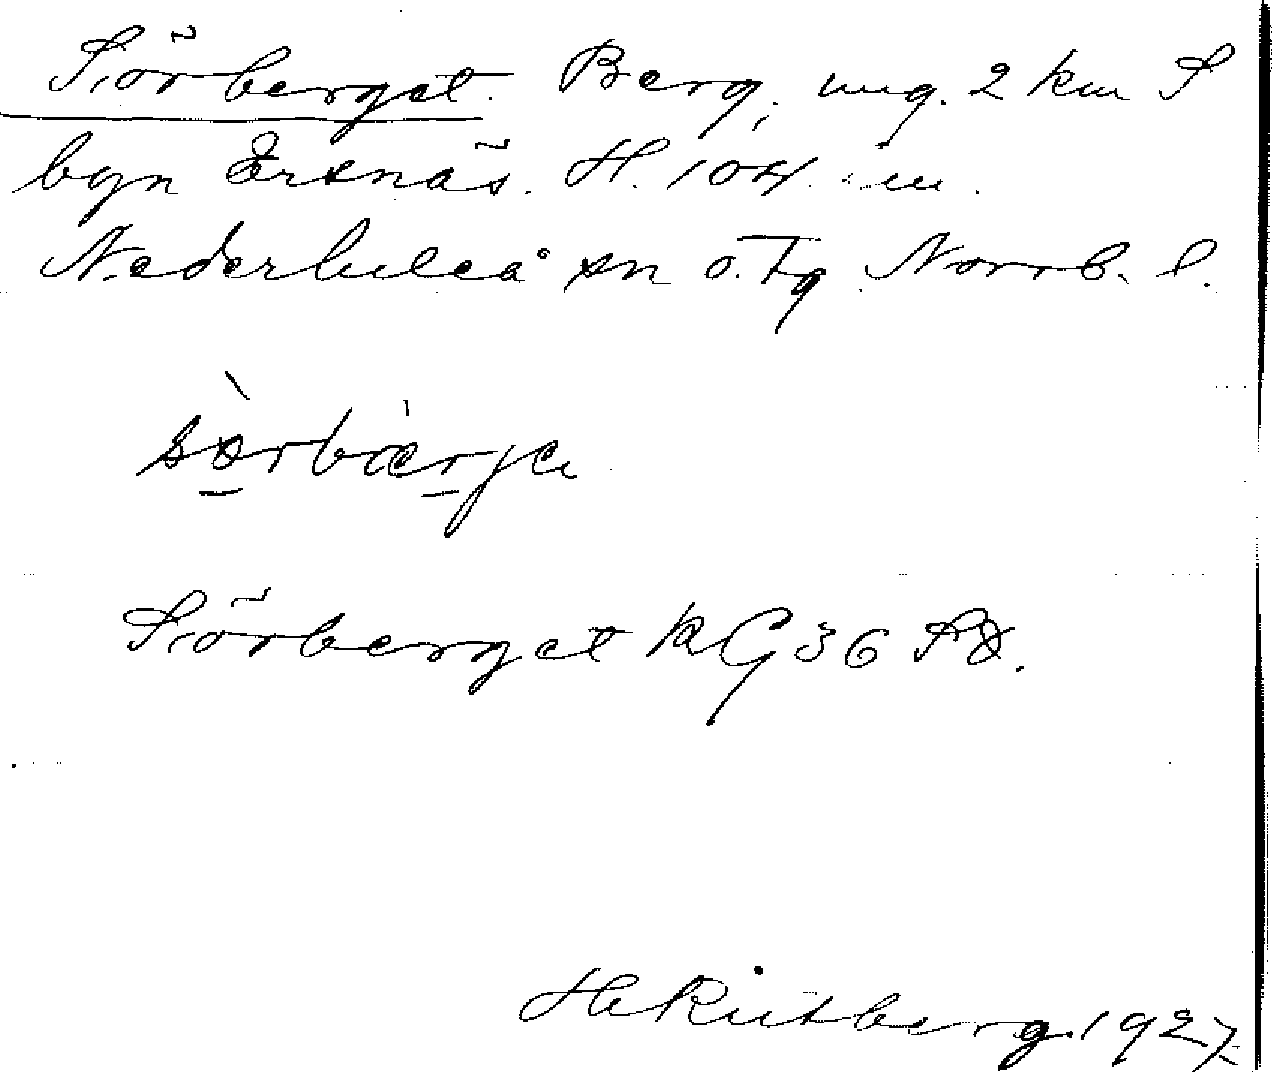 Sörberget. Berg, ung. 2 km S
byn Ersnäs. H. 104 m.
Nederluleå sn o. Tg. Norrb. l.
sörbærje
Sörberget kG 36 SO.
H. Rutberg. 1927.